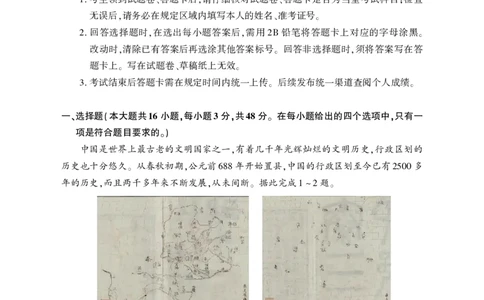 无误后,请务必在规定区域内填写本人的姓名、准考证号。
2. 回答选择题时,在选出每小题答案后,需用 2B 铅笔将答题卡上对应的字母涂黑。
改动时,清除已有答案后再选涂其他答案标号。回答非选择题时,须将答案写在答
题卡上。写在试题卷、草稿纸上无效。
3. 考试结束后答题卡需在规定时间内统一上传。后续发布统一渠道查阅个人成绩。
一、选择题(本大题共 16 小题,每小题 3 分,共 48 分。在每小题给出的四个选项中,只有一
项是符合题目要求的。)
中国是世界上最古老的文明国家之一,有着几千年光辉灿烂的文明历史,行政区划的
历史也十分悠久。从春秋初期,公元前 688 年开始置县,中国的行政区划至今已有 2500 多
年的历史,而且两千多年来不断发展,从未间断。据此完成 1 ~ 2 题。